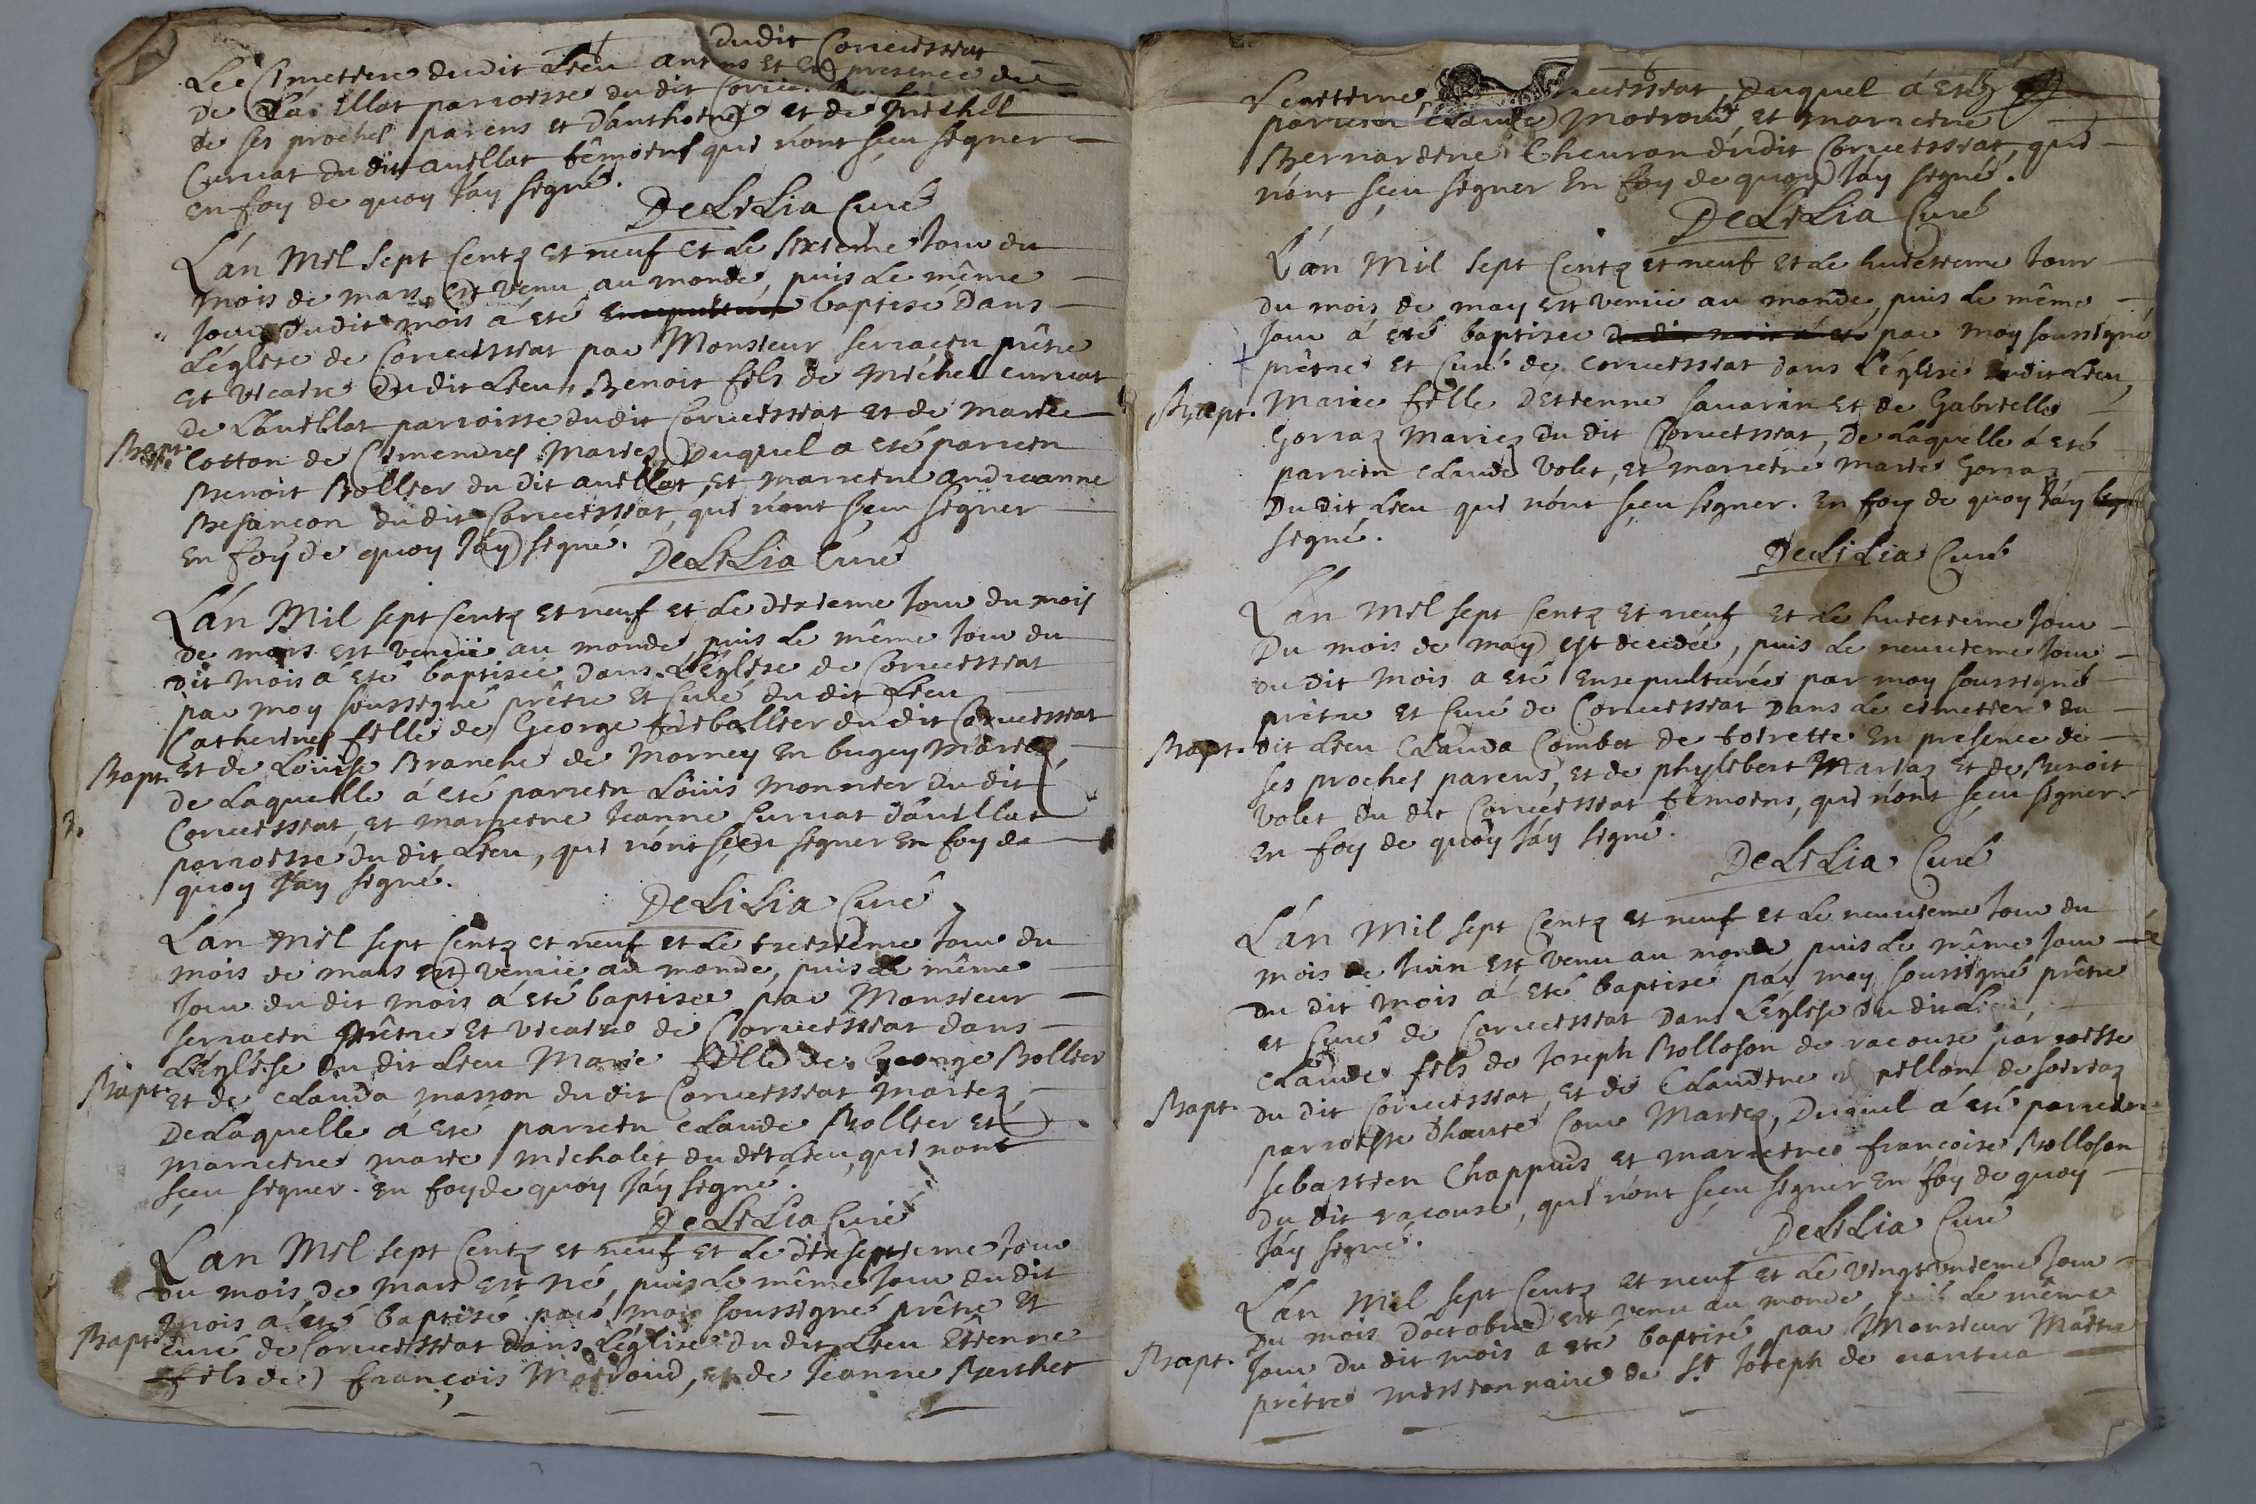 dudit Corveissiat
Le Cimetiere dudit Lieu
De Lavillat parroisse du dit
de ses proches parens et Danthoine et de Michel
Curvat du dit avillat têmoins qui n'ont sçeu signer
en foy de quoy J'áy signé.
DeLiLia Curé
L'án Mil sept Centz et neuf et Le sixieme Jour du
Mois de mars est venu au monde, puis Le même
Jour dudit mois á eté baptisé Dans
L'église de Corveissiat par Monsieur serracin prêtre
et vicaire du dit Lieu, Benoit fils de Michel curvat
De Lavillat parroisse du dit Corveissiat et de mariee
Bapt. Cotton de Cimendres Mariez Duquel a eté parrein
Benoit Bollier du dit avillat, et marreine andreanne
Besançon du dit Corveissiat, qui n'ont sçeu signer
En foy de quoy J'áy signé.
DeLiLia Curé
L'án Mil sept Centz et neuf et Le dixieme Jour du mois
de mars est venüe au monde, puis Le même Jour du
dit mois á eté baptisée Dans L'église de Corveissiat
par moy soussigné prêtre et Curé du dit Lieu
Catherine fille de George fribollier du dit Corveissiat
Bapt. et de Loüise Branche de Mornay En bugey Mariez,
de Laquelle á eté parrein Loüis Monnier Du dit
Corveissiat, et marreine Jeanne Curvat D'avillat
parroisse du dit Lieu, qui n'ont sçeu signer En foy de
quoy J'áy signé.
DeLiLia Curé
L'án Mil sept Centz et neuf et Le treizieme Jour du
mois de mars est venüe au monde, puis Le même
Jour du dit mois á eté baptisée par Monsieur
serracin prêtre et vicaire de Corveissiat dans
L'église du dit Lieu Marie fille de George Bollier
Bapt. et de Clauda masson du dit Corveissiat Mariez,
De Laquelle á eté parrein Claude Bollier et
marreine marie michalet du dit Lieu, qui n'ont
sçeu signer. en foy de quoy J'áy signé.
DeLiLia Curé
L'án Mil sept Centz et neuf et Le dixseptieme Jour
du mois de mars est Né, puis Le même Jour du dit
Mois á eté baptisé par moy soussigné prêtre et
Bapt. Curé de Corveissiat Dans L'église du dit Lieu Etienne
fils de françois Moiroud, et de Jeanne Berthet
Duquel á eté
parrein Claude Moiroud, et marreine
Bernardine Chevron dudit Corveissiat, qui
n'ont sçeu signer En foy de quoy J'áy signé.
DeLiLia Curé
L'án Mil sept Centz et neuf et Le huitieme Jour
du mois de may est venüe au monde, puis Le même
Jour á eté baptisée par moy soussigné
prêtre et Curé de Corveissiat dans L'église dudit Lieu
Bapt. Marie fille D'etienne savarin et de Gabrielle
Gorraz Mariez du dit Corveissiat, De Laquelle á eté
parrein Claude Volet, et marreine Marie Gorraz
Du dit Lieu qui n'ont sçeu signer. En foy de quoy J'áy
signé.
DeLiLia Curé
L'án Mil sept Centz et neuf et Le huitieme Jour
Du mois de may est decedée, puis Le neuvieme Jour
du dit Mois a eté Ensepulturée par moy soussigné
prêtre et Curé de Corveissiat Dans Le cimetiere du
Bapt. dit Lieu Clauda Combet de toirette En presence de
ses proches parens, et de phylibert Marsaz et de Benoit
Volet du dit Corveissiat têmoins, qui n'ont sçeu signer.
En foy de quoy J'áy signé.
DeLiLia Curé
L'án Mil sept Centz et neuf et Le neuvieme Jour du
mois de Juin est venu au monde puis Le même Jour
du dit mois á eté baptisé par moy soussigné prêtre
et Curé de Corveissiat Dans L'église du dit Lieu,
Claude fils de Joseph Bolloson de racouse parroisse
Bapt. du dit Corveissiat, et de Claudine pillon de soiriaz
parroisse D'haute Cour Mariez, Duquel á eté parrein
sebastien Chappuis et marreine françoise Bolloson
du dit racouse, qui n'ont sçeu signer En foy de quoy
J'áy signé.
DeLiLia Curé
L'án Mil sept Centz et neuf et Le Vingtunieme Jour
du mois Doctobre est venu au monde, puis Le même
Bapt. Jour du dit mois a eté baptisé par Monsieur Maître
prêtre missionnaire de St Joseph de nantua